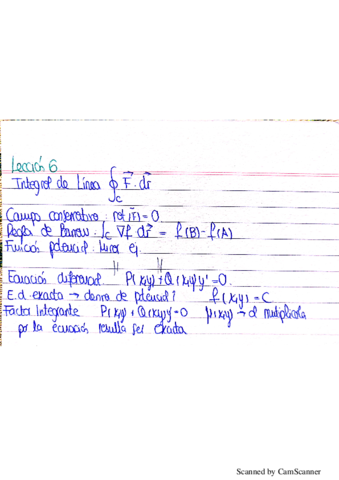 Lección 6
Integral de Línea ∮_C F⃗ · dr⃗
Campo conservativo: rot(F⃗) = 0
Regla de Barrow: ∫_C ∇f dr⃗ = f(B) - f(A)
Función potencial: Mirar ej.
Ecuación diferencial P(x,y) + Q(x,y)y' = 0
E.d. exacta → deriva de potencial? f(x,y) = C
Factor Integrante P(x,y) + Q(x,y)y' = 0 μ(x,y) → al multiplicarla
por la ecuación resulta ser exacta
Scanned by CamScanner